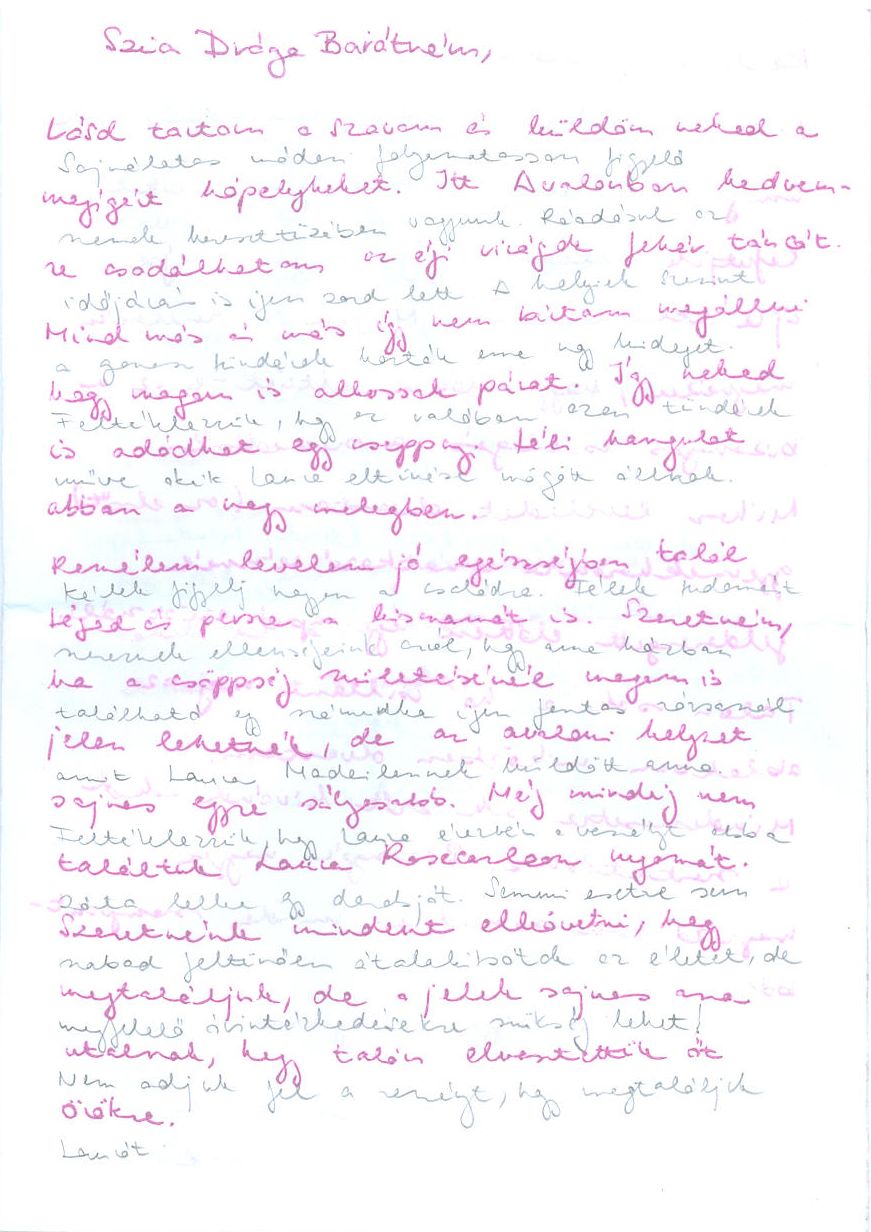 Szia Drága Barátném,
Lásd tartom a szavam és küldöm neked a
Sajnálatos módon folyamatosan figyelő
megígért hópelyheket. Itt Avalonban kedvem-
szemek kereszttüzében vagyunk. Ráadásul az
re csodálhatom az égi virágok fehér táncát.
időjárás is ijen zord lett. A helyiek szerint
Mind más és más így nem bírtam megállni
a gonosz tündérek hozták eme nagy hideget.
hogy magam is alkossak párat. Így neked
Feltételezzük, hogy ez valóban azon tündérek
is adódhat egy cseppnyi téli hangulat
műve akik Laura eltűnése mögött állnak.
abban a nagy melegben.
Remélem levelem jó egészségben talál
Kélek figyelj nagyon a családra. Félek tudomást
téged és persze a kismamát is. Szeretném,
szereznek ellenségeink arról, hogy ama házban
ha a csöppség születésénél magam is
található egy számukra ijen fontos rózsaszál
jelen lehetnék, de az avaloni helyzet
amit Laura Madeilennek küldött anno.
sajnos egyre súlyosabb. Még mindig nem
Feltételezzük hogy Laura érezvén a veszélyt abba
találtuk Laura Rosecarleon nyomát.
zárta lelke egy darabját. Semmi esetre sem
Szeretnénk mindent elkövetni, hogy
szabad feltűnően átalakítsátok az életet, de
megtaláljuk, de a jelek sajnos arra
megfelelő óvintézkedésekre szükség lehet!
utalnak, hogy talán elvesztettük őt
Nem adjuk fel a reményt, hogy megtaláljuk
örökre.
Laurát.